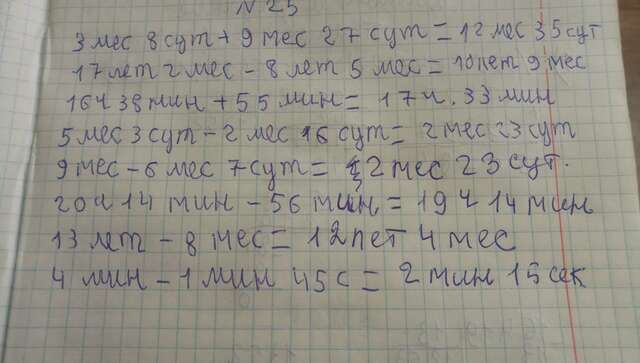 N 25
3 мес 8 сут + 9 мес 27 сут = 12 мес 35 сут
17 лет 2 мес - 8 лет 5 мес = 10 лет 9 мес
16ч 38 мин + 55 мин = 17 ч. 33 мин
5 мес 3 сут - 2 мес 16 сут = 2 мес 23 сут
9 мес - 6 мес 7 сут = 2 мес 23 сут.
20ч 14 мин - 56 мин = 19 ч 14 мин
13 лет - 8 мес = 12 лет 4 мес
4 мин - 1 мин 45 с = 2 мин 15 сек